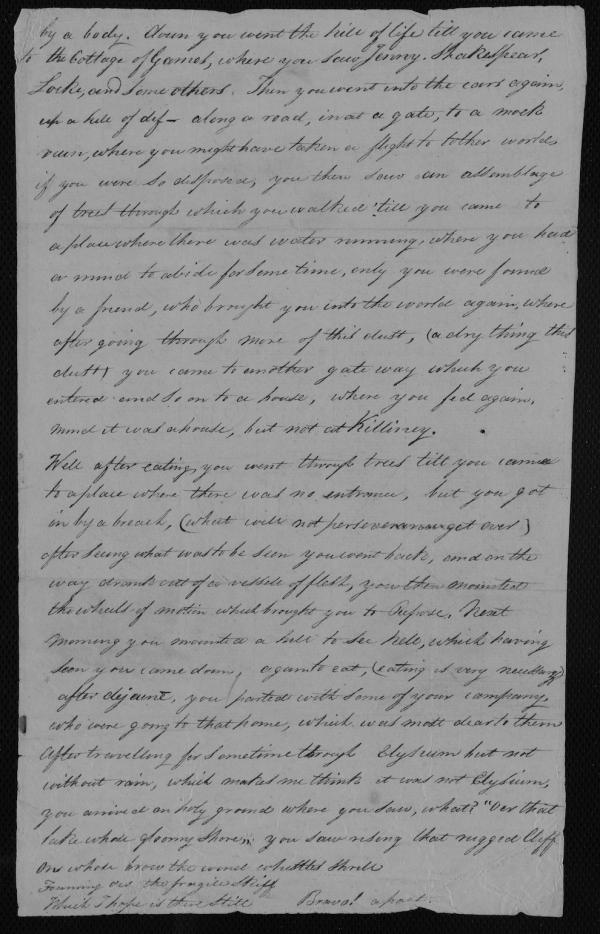 by a body. Down you went the hill of life till you came
to the Cottage of Games, where you saw Jenny. Shakespear,
Locke, and some others. Then you went into the cars again,
up a hill of dif— along a road, in at a gate, to a mock
ruin, where you might have taken a flight to tother world,
if you were so disposed, you then saw an assemblage
of trees through which you walked 'till you came to
a place where there was water running, where you had
a mind to abide for some time, only you were found
by a friend, who brought you into the world again, where
after going through more of this dust, (a dry thing this
dust) you came to another gate way which you
entered and so on to a house, where you fed again,
mind it was a house, but not at Killiney.
Well after eating, you went through trees till you came
to a place where there was no entrance, but you got
in by a breach, (what will not perseverance get over)
after seeing what was to be seen you went back, and on the
way drank out of a vessele of flesh, you then mounted
the wheels of motion which brought you to Repose. Next
morning you mounted a hill to see hell, which having
seen you came down, again to eat, (eating is very necessary)
after dejeune, you parted with some of your company,
who were going to that home, which was most dear to them
After travelling for sometime through Elysium but not
without rain, which makes me think it was not Elysium,
you arrived on holy ground where you saw, what? "Oer that
lake whose gloomy shore," you saw rising that rugged Cliff
On whose brow the wind whistles shrill
Foaming oer the fragile Skiff
Which I hope is there still Bravo! a poet.